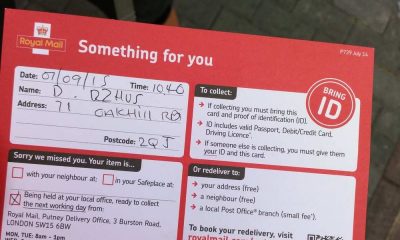 P739 July 14
Royal Mail
Something for you
Date: 07/09/15 Time: 10.40
Name: D.
Address: 71 OAKHILL RD
Postcode: 2QJ
To collect:
→ If collecting you must bring this
card and proof of identification (ID).
→ ID includes valid Passport, Debit/Credit Card,
Driving Licence.
→ If someone else is collecting, you must give them
your ID and this card.
BRING
ID
Sorry we missed you. Your item is...
with your neighbour at: in your Safeplace at:
Being held at your local office, ready to collect
the next working day from:
Royal Mail, Putney Delivery Office, 3 Burston Road,
LONDON SW15 6BW
MON, TUE: 8am - 1pm
Or redeliver to:
→ your address (free)
→ a neighbour (free)
→ a local Post Office® branch (small fee*).
To book your redelivery, visit